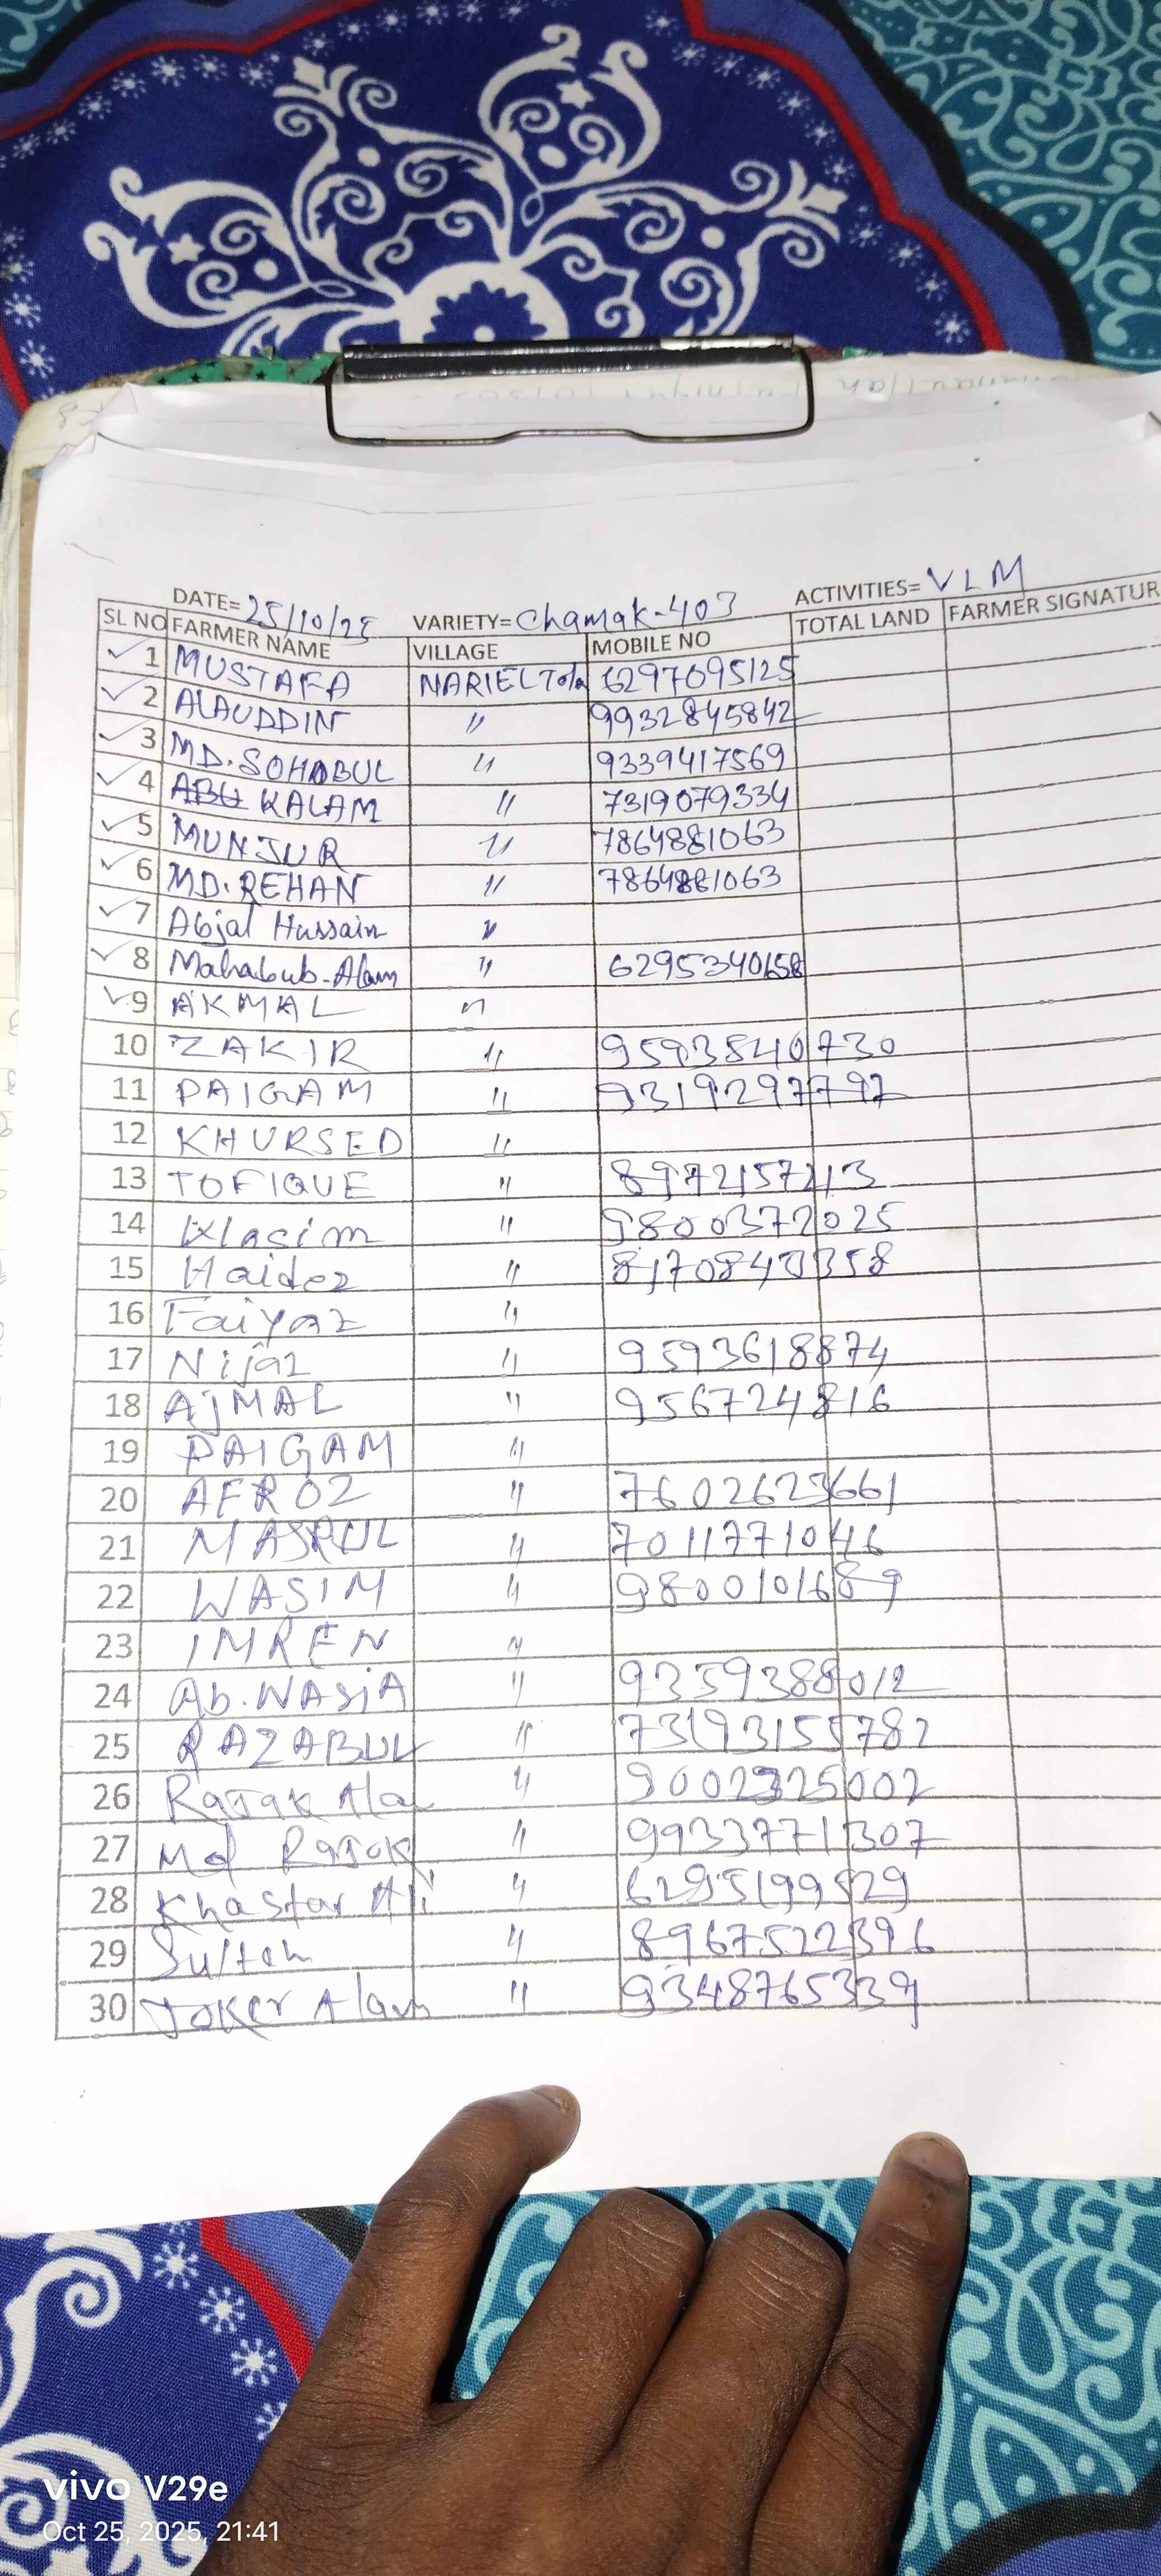 DATE= 25/10/25 VARIETY= Chamak-403 ACTIVITIES= VLM
SL NO FARMER NAME VILLAGE MOBILE NO TOTAL LAND FARMER SIGNATUR
1 MUSTAFA NARIEL Tola 6297095125
2 ALAUDDIN " 9932845842
3 MD. SOHABUL " 9339417569
4 ABU KALAM " 7319079334
5 MUNJUR " 7864881063
6 MD. REHAN " 7864881063
7 Abjal Hussain "
8 Mahabub-Alam " 6295340658
9 AKMAL "
10 ZAKIR " 9593840730
11 PAIGAM " 9319297797
12 KHURSED "
13 TOFIQUE " 8972157213
14 " 9800372025
15 Haider " 8170840358
16 Faiyaz "
17 Nijaz " 9593618874
18 AJMAL " 956724816
19 PAIGAM "
20 AFROZ " 7602623661
21 " 7011771046
22 WASIM " 9800101689
23 IMREN "
24 Ab. WASiA " 9359388012
25 RAZABUL " 73193155782
26 Rajak Ala "
27 Md Rajak " 9933771307
28 Khastar Ali " 6295199529
29 Sultan " 8967522396
30 Joker Alam " 9348765339
vivo V29e
Oct 25, 2025, 21:41